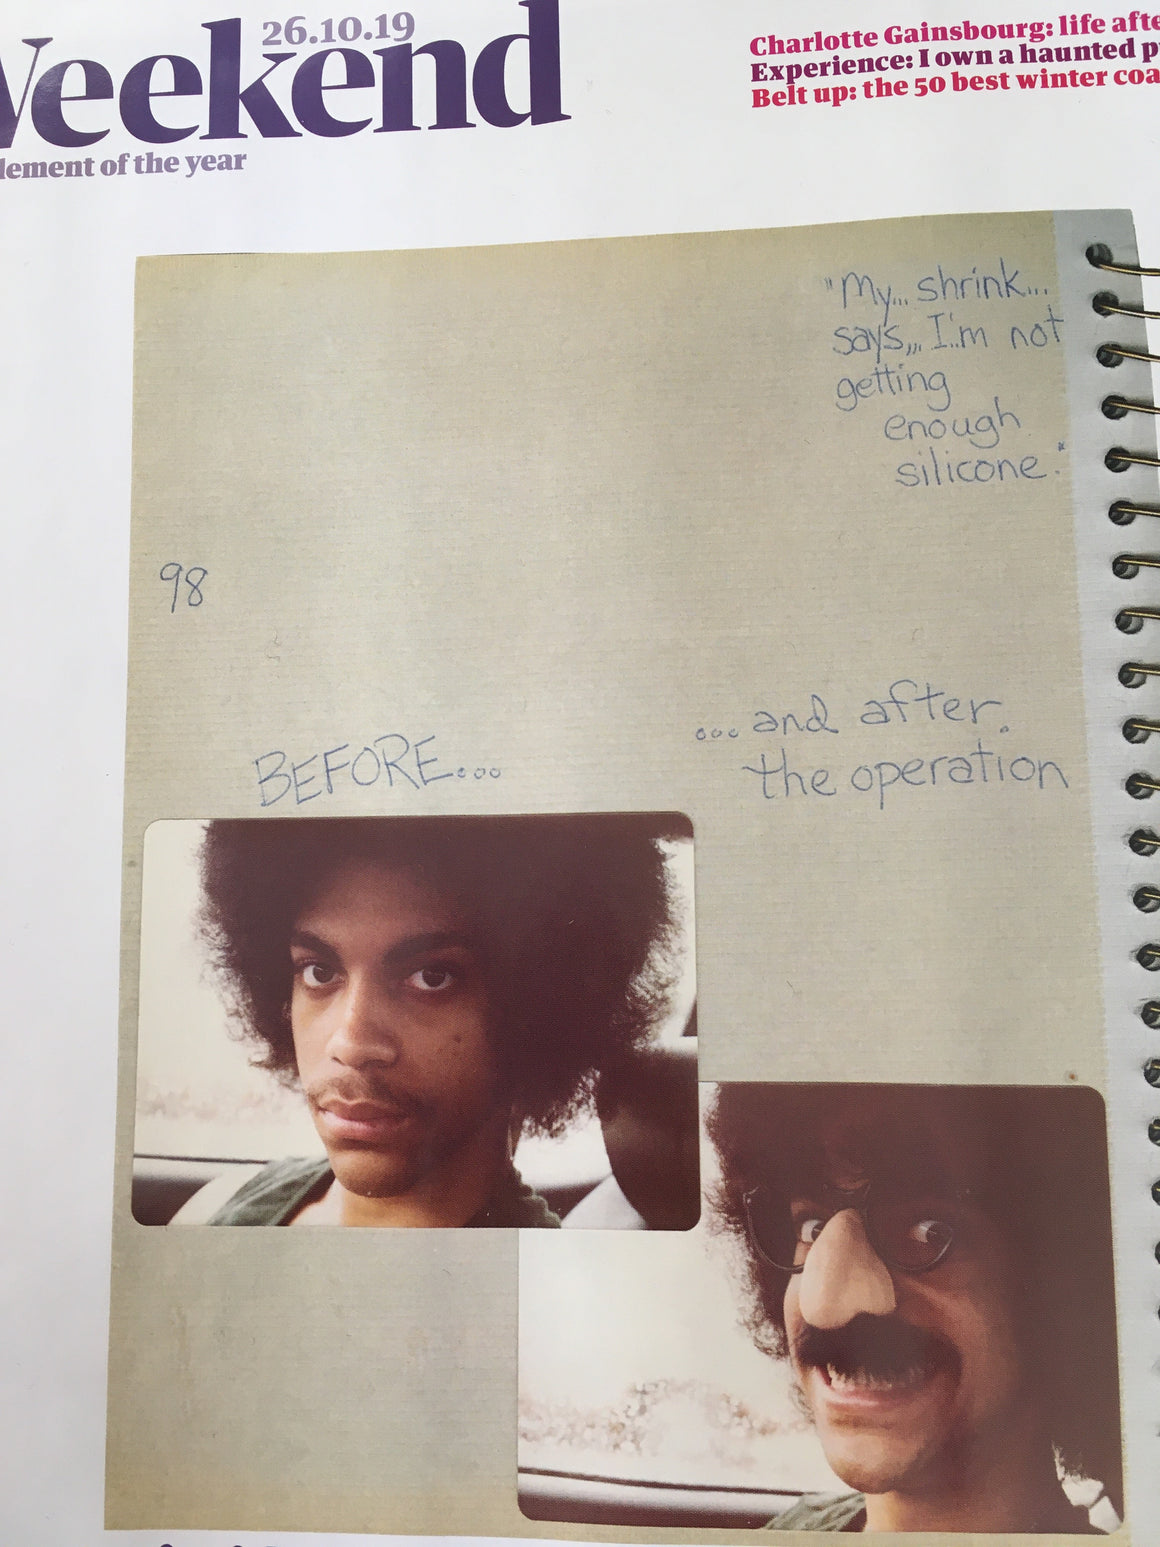 26.10.19
Weekend
lement of the year
Charlotte Gainsbourg: life afte
Experience: I own a haunted p
Belt up: the 50 best winter coa
"My... shrink...
says,,, I'm not
getting
enough
silicone."
98
BEFORE...
...and after.
the operation